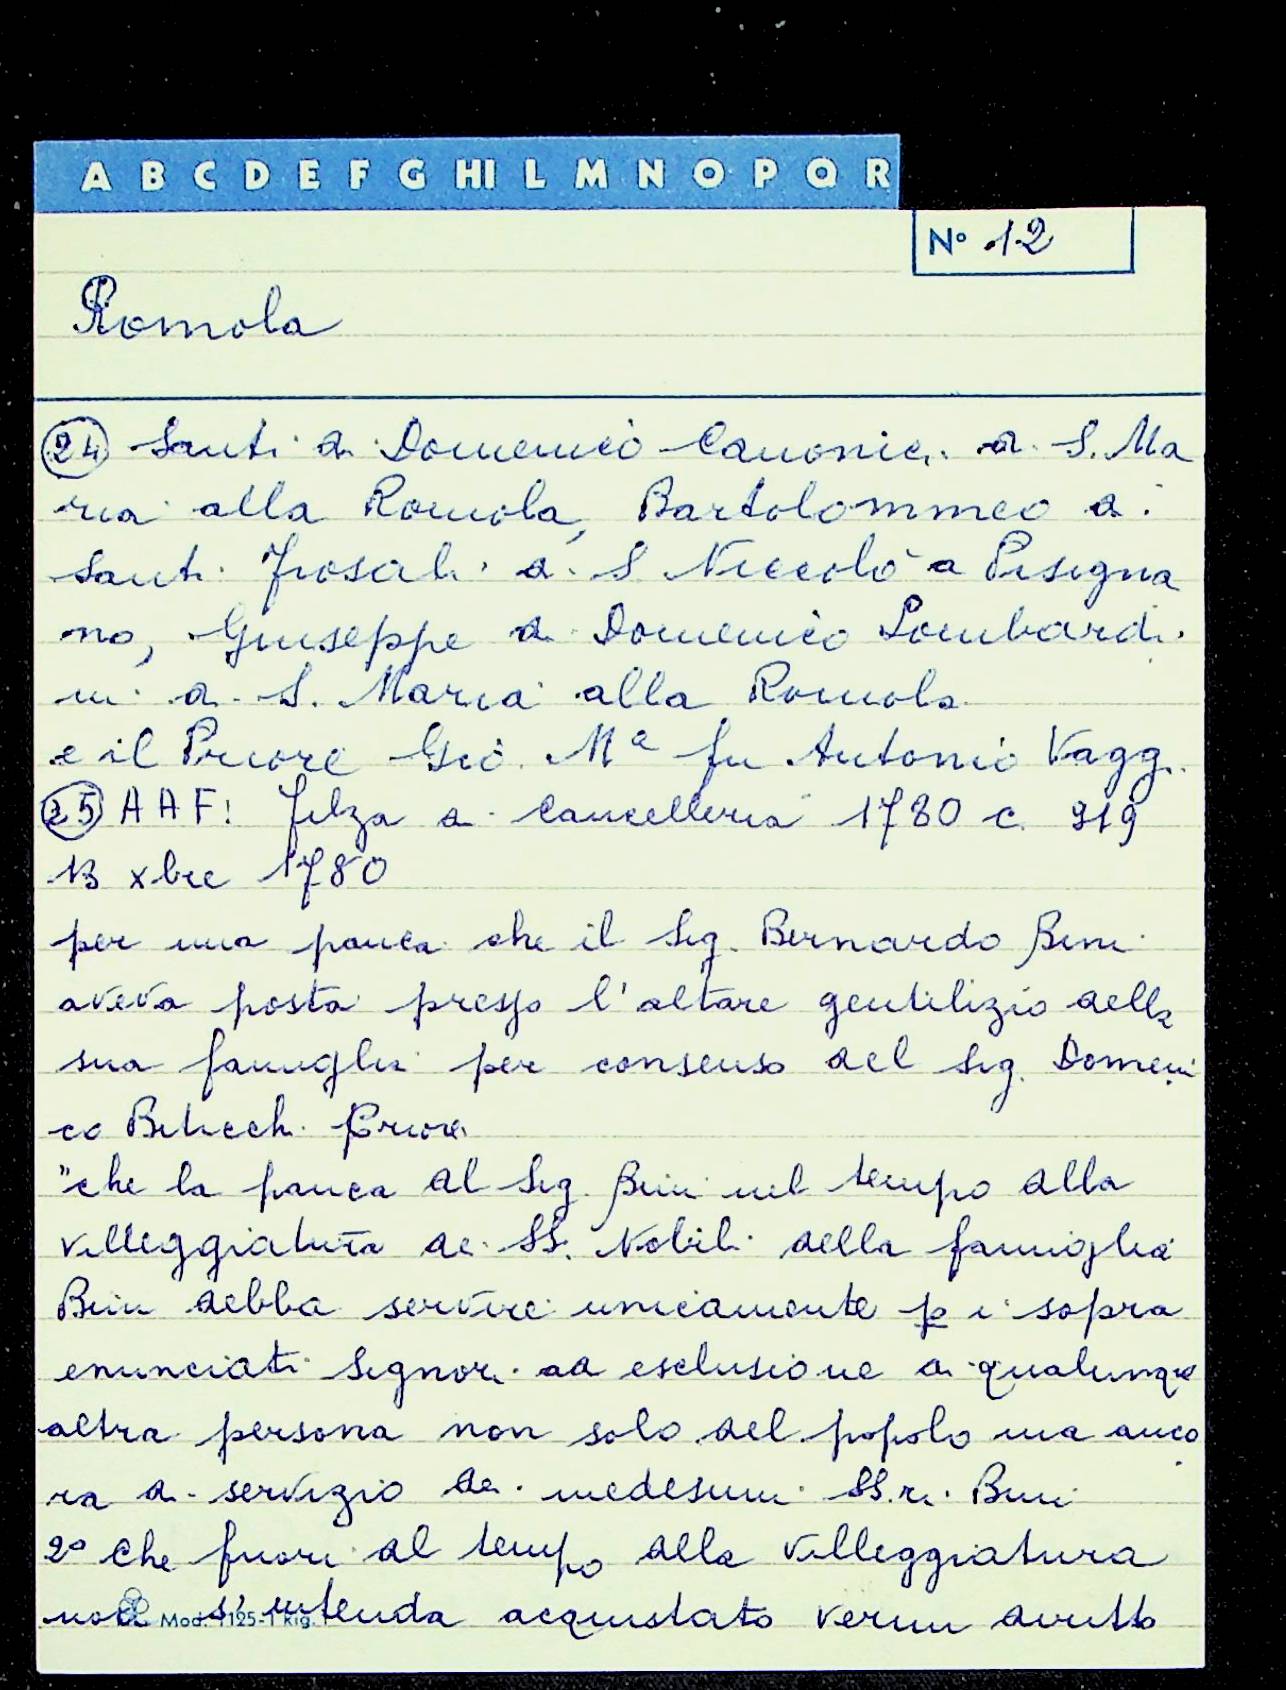 A B C D E F G HI L M N O P Q R
N° 12
Romola
24 Santi di Domenico Canonici di S. Ma
ria alla Romola, Bartolommeo di
Santi Frosali di S Niccolò a Pisigna
no, Giuseppe di Domenico Lombardi
ni di S. Maria alla Romola
e il Priore Gio. Mª fu Antonio Vaggi
25 AAF: Filza di Cancelleria 1780 c. 919
13 xbre 1780
per una panca che il Sig. Bernardo Bini
aveva posta presso l'altare gentilizio della
sua famiglia per consenso del Sig. Domeni
co Priore
"che la panca del Sig. Bini nel tempo della
villeggiatura de SS. Nobili della famiglia
Bini debba servire unicamente p i sopra
enunciati Signori ad esclusione di qualunque
altra persona non solo del popolo ma anco
ra di servizio dei medesimi SS.ri Bini
2° che fuori del tempo della villeggiatura
non s'intenda acquistato verun diritto
Mod. 1125-1 Rig.